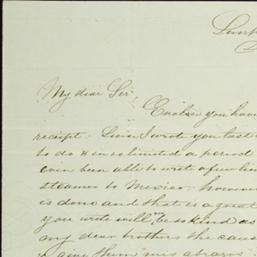 My dear Sir,
you have
receipt. Since I wrote you last
to do & in so limited a period
even been able to write a few lin
steamer to Mexico. however
is done and that is a great
you write will be so kind as
my dear brothers the cause
give them mis abrazos